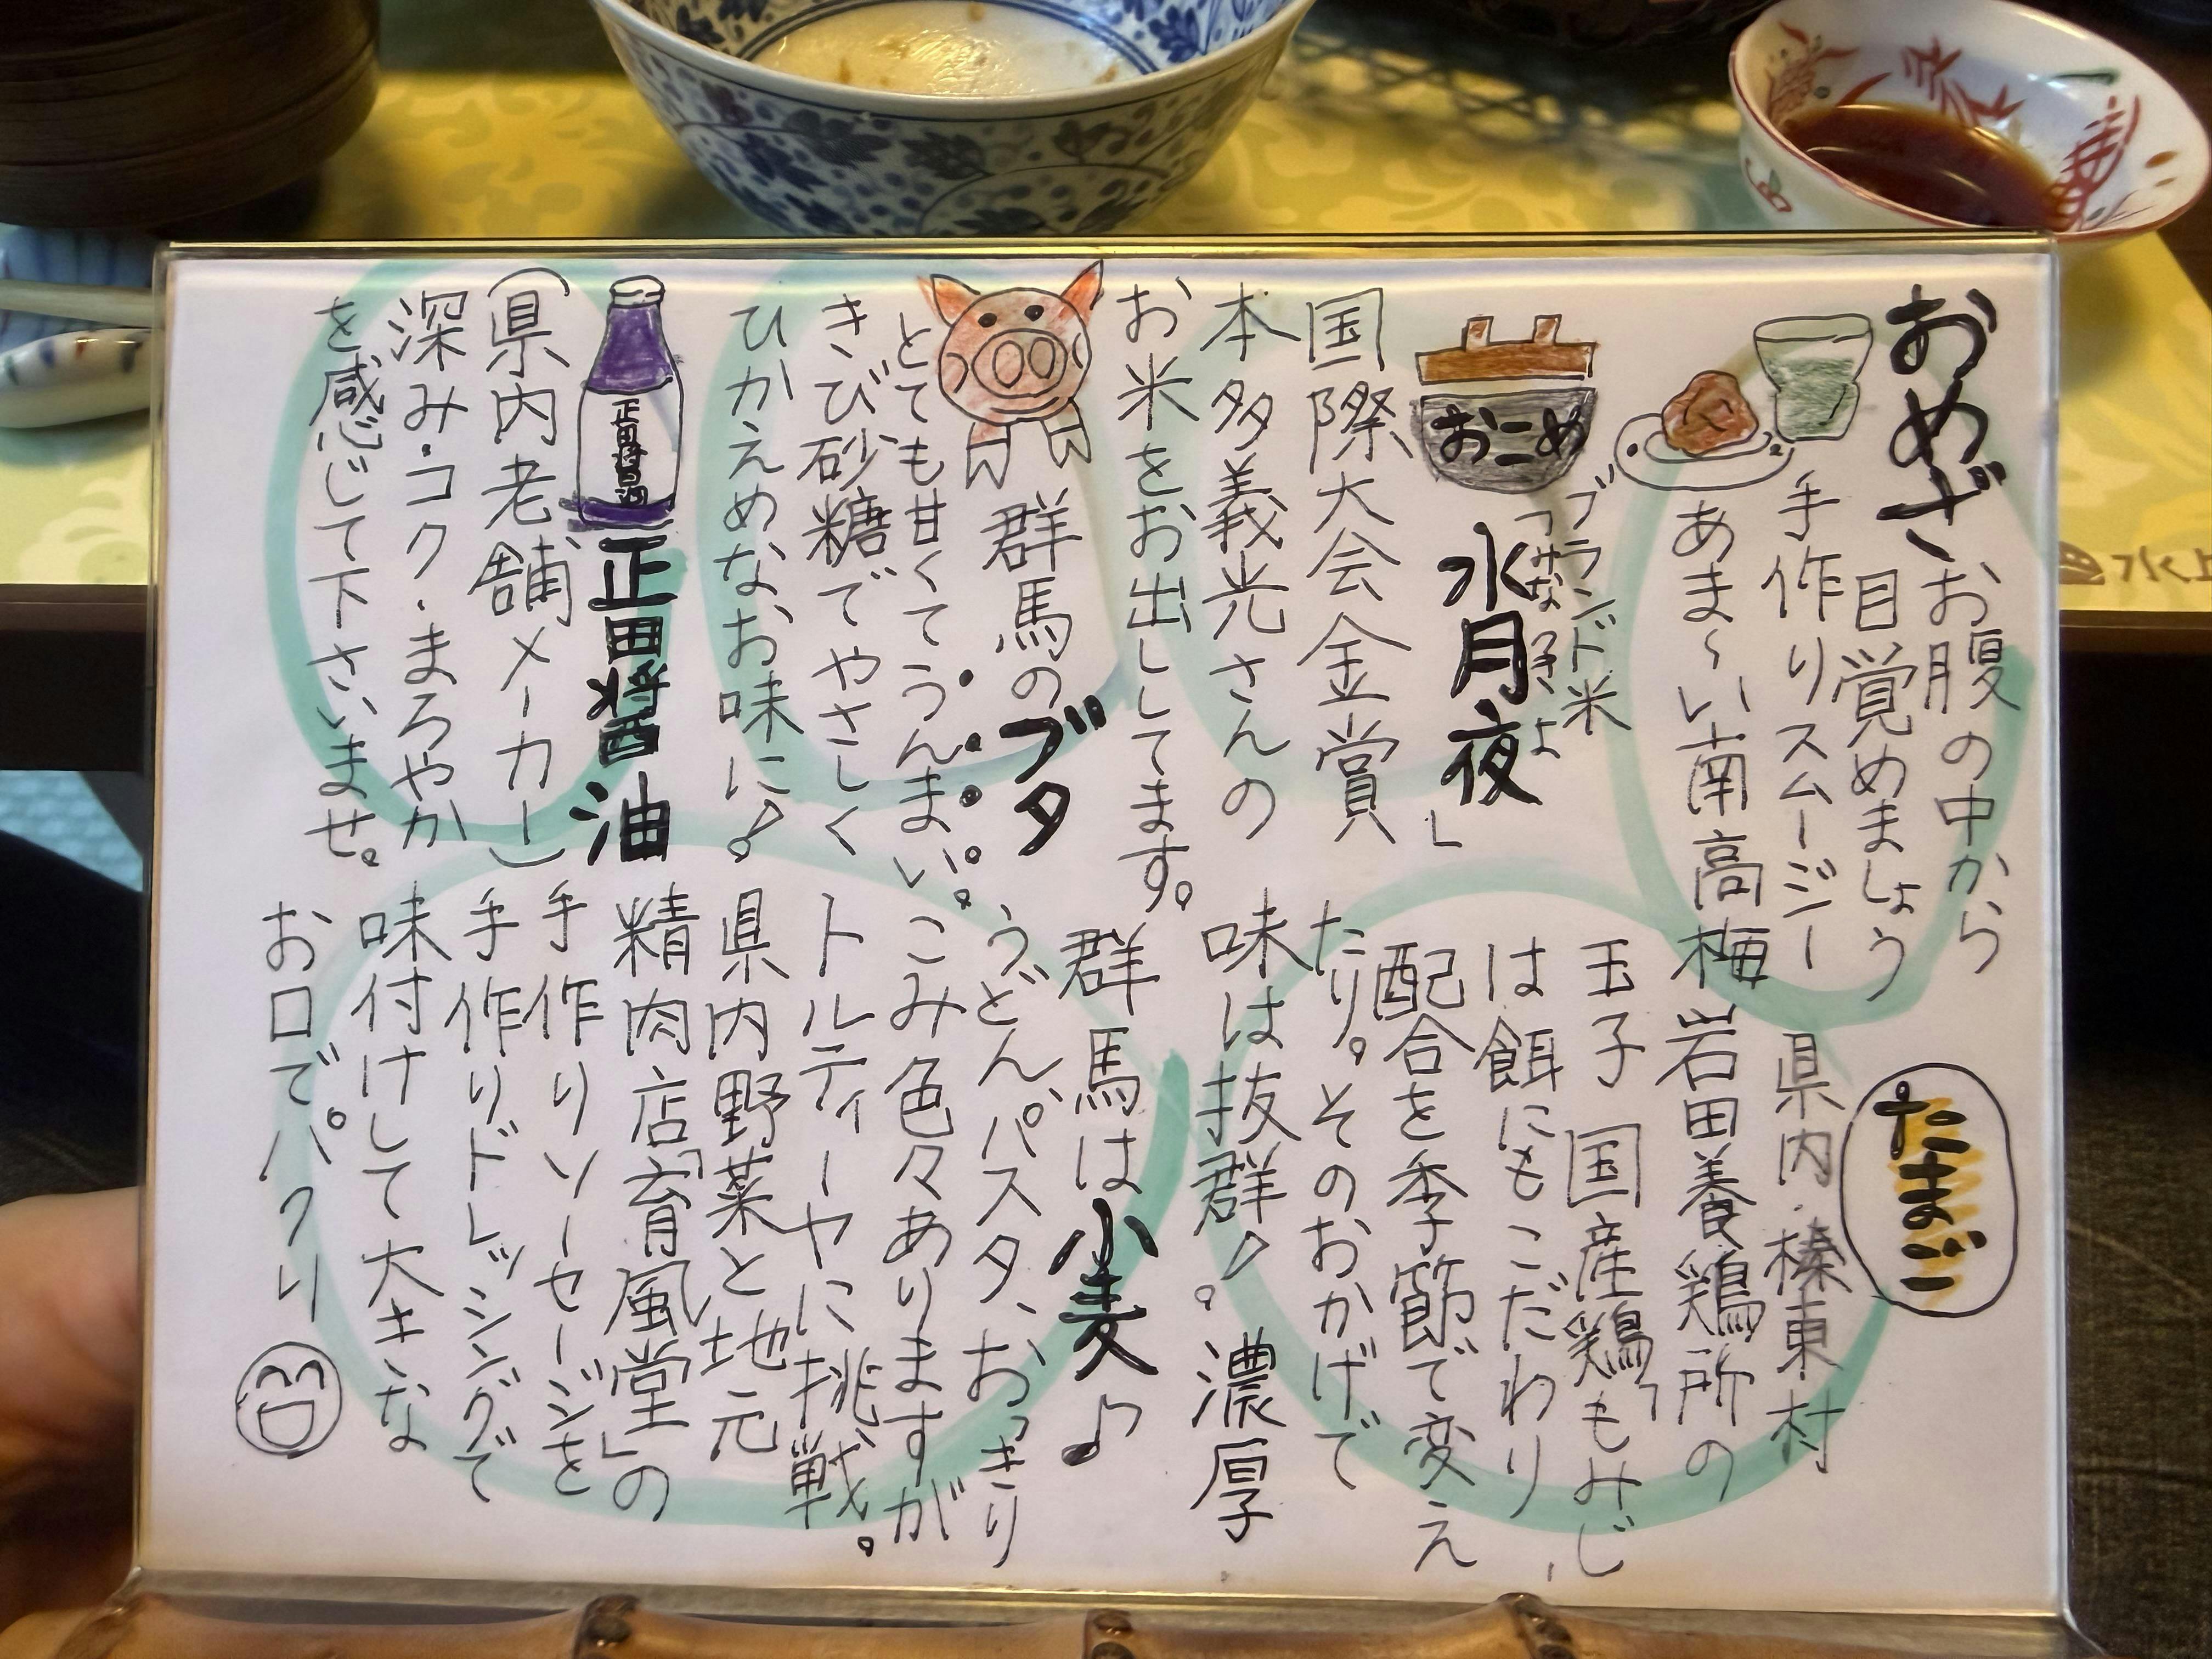 おめざ
お腹の中から
目覚めましょう
手作りスムージー
あま～い南高梅
おこめ
ブランド米
「水月夜」
国際大会金賞
本多義光さんの
お米をお出ししてます。
群馬のブタ
とても甘くてうんまい。
きび砂糖でやさしく
ひかえめなお味に♪
正田醤油
正田醤油
(県内老舗メーカー)
深み・コク・まろやか
を感じて下さいませ。
たまご
県内・榛東村
岩田養鶏所の
玉子 国産鶏「もみじ」
は餌にもこだわり
配合を季節で変え
たり。そのおかげで
味は抜群♪。濃厚
群馬は小麦♪
うどん、パスタ、おっきり
こみ色々ありますが
トルティーヤに挑戦。
県内野菜と地元
精肉店「育風堂」の
手作りソーセージを
手作りドレッシングで
味付けして大きな
お口でパクリ
水上